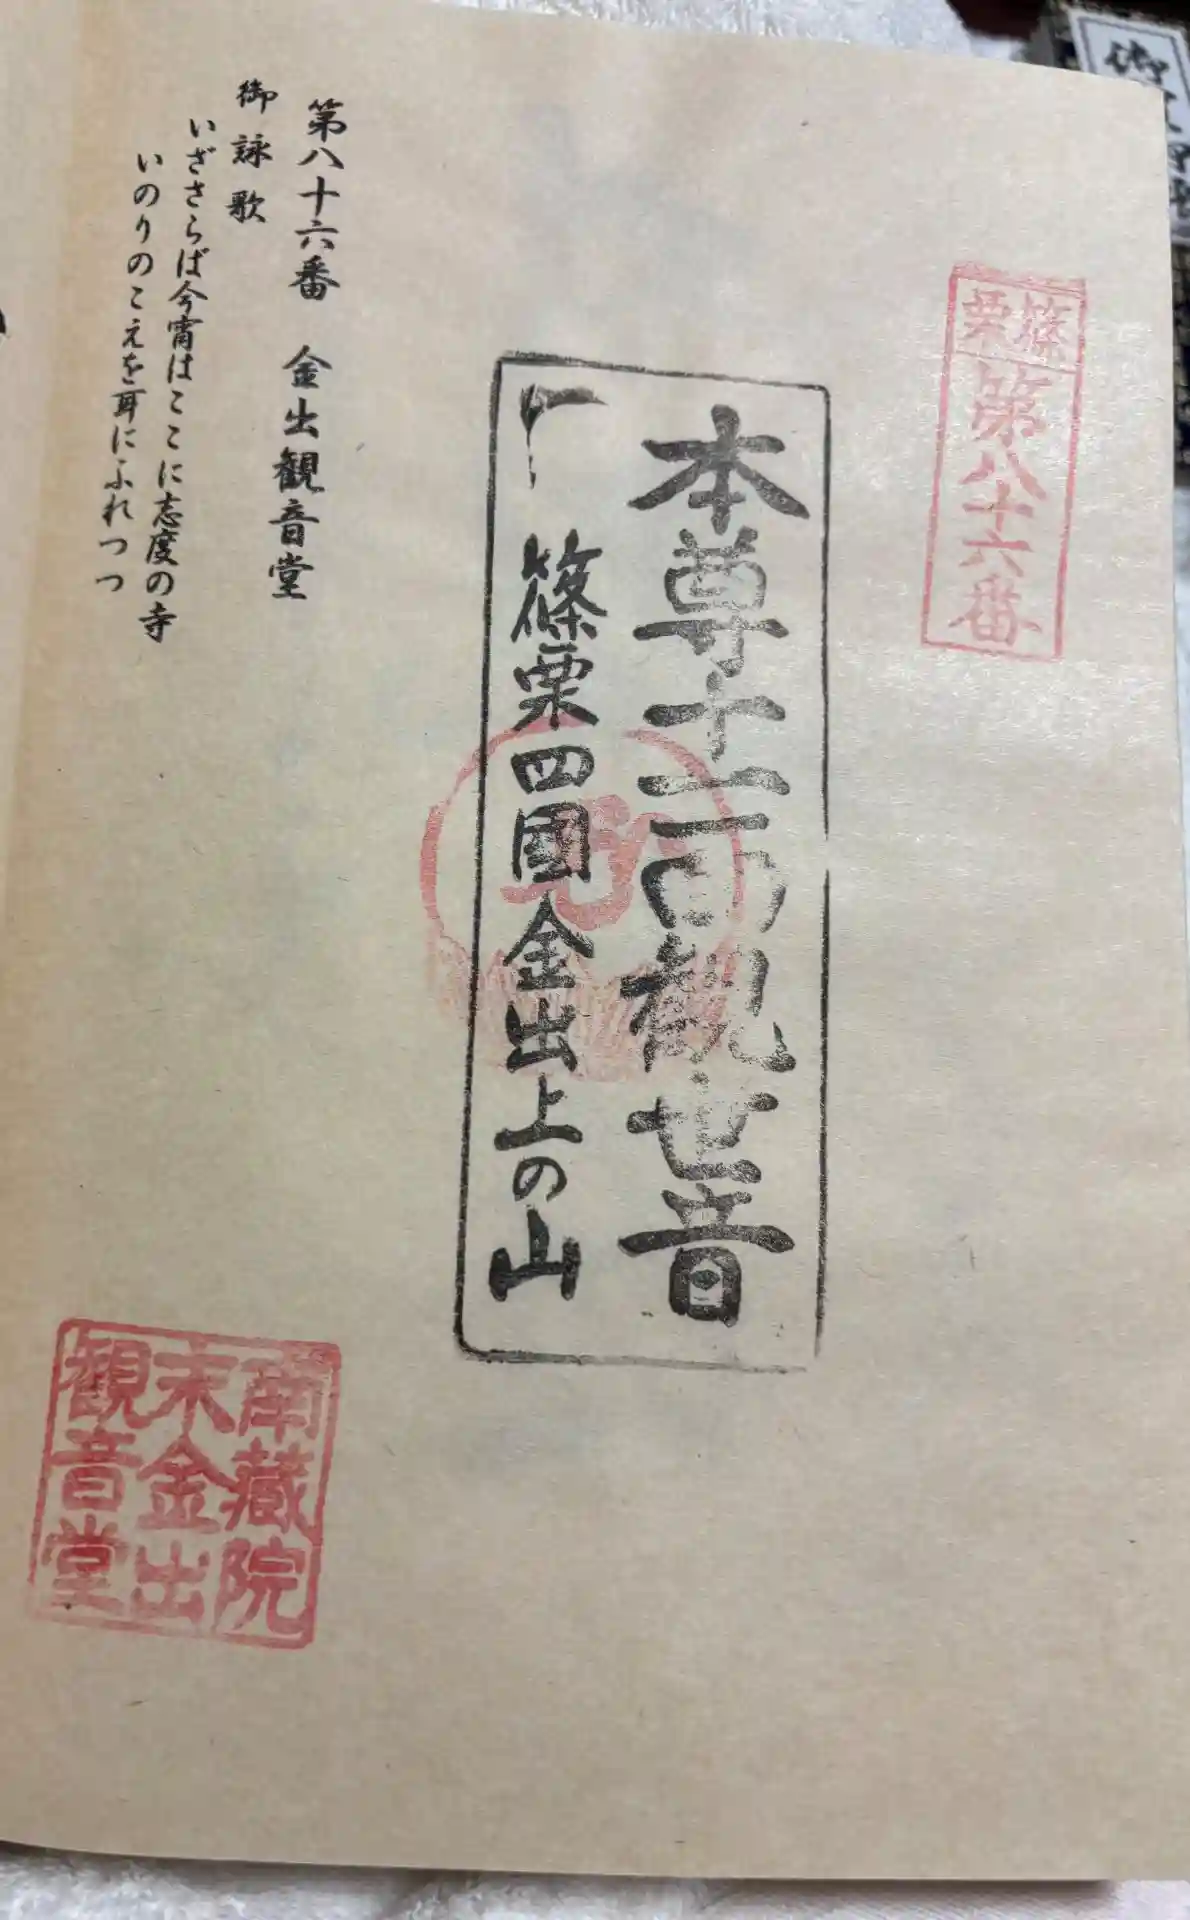 篠栗
第八十六番
本尊十一面観世音
篠栗四國金出上の山
第八十六番 金出観音堂
御詠歌
いざさらば今宵はここに志度の寺
いのりのこえを耳にふれつつ
南蔵院
末金出
観音堂